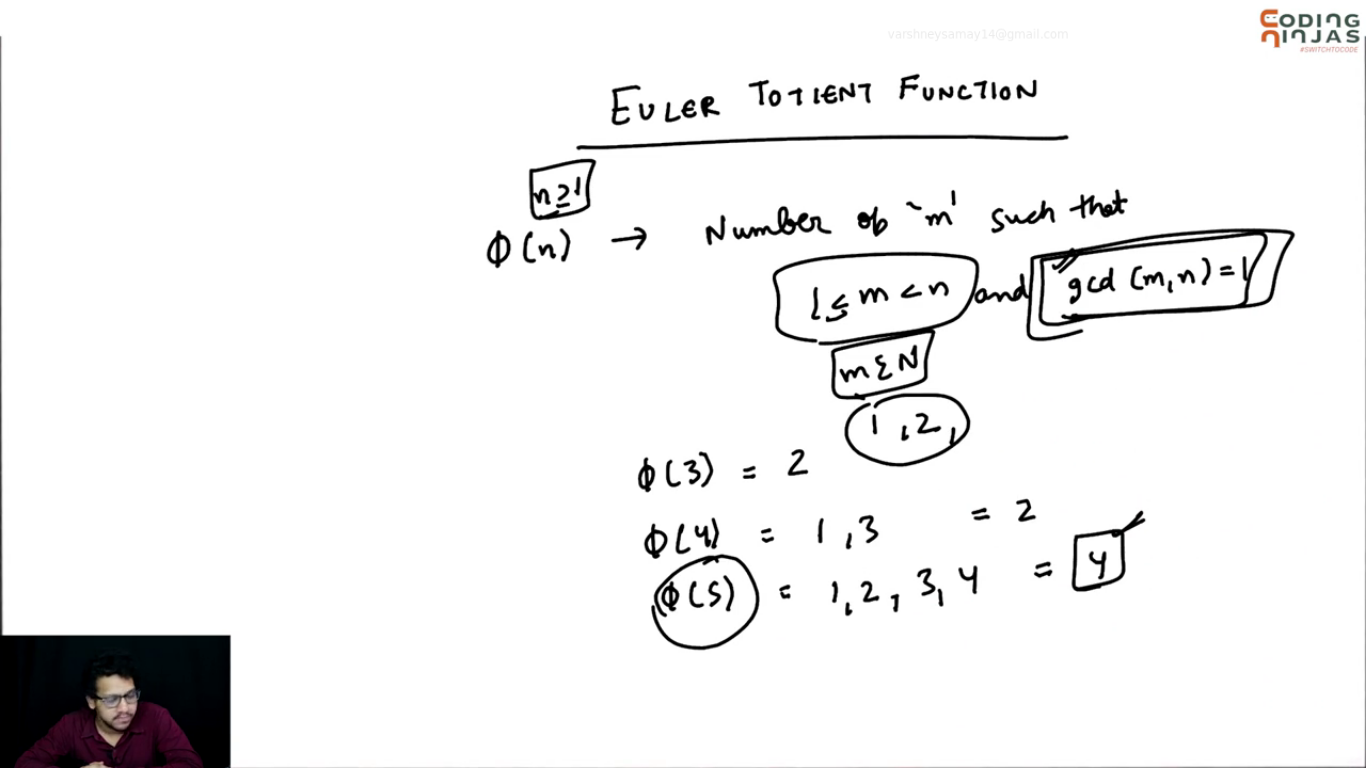 varshneysamay14@gmail.com
CODING
NINJAS
#SWITCHTOCODE
EULER TOTIENT FUNCTION
n ≥ 1
ϕ(n) → Number of `m' such that
1 ≤ m < n and gcd (m,n) = 1
m Σ N
1, 2,
ϕ(3) = 2
ϕ(4) = 1, 3 = 2
ϕ(5) = 1, 2, 3, 4 = 4